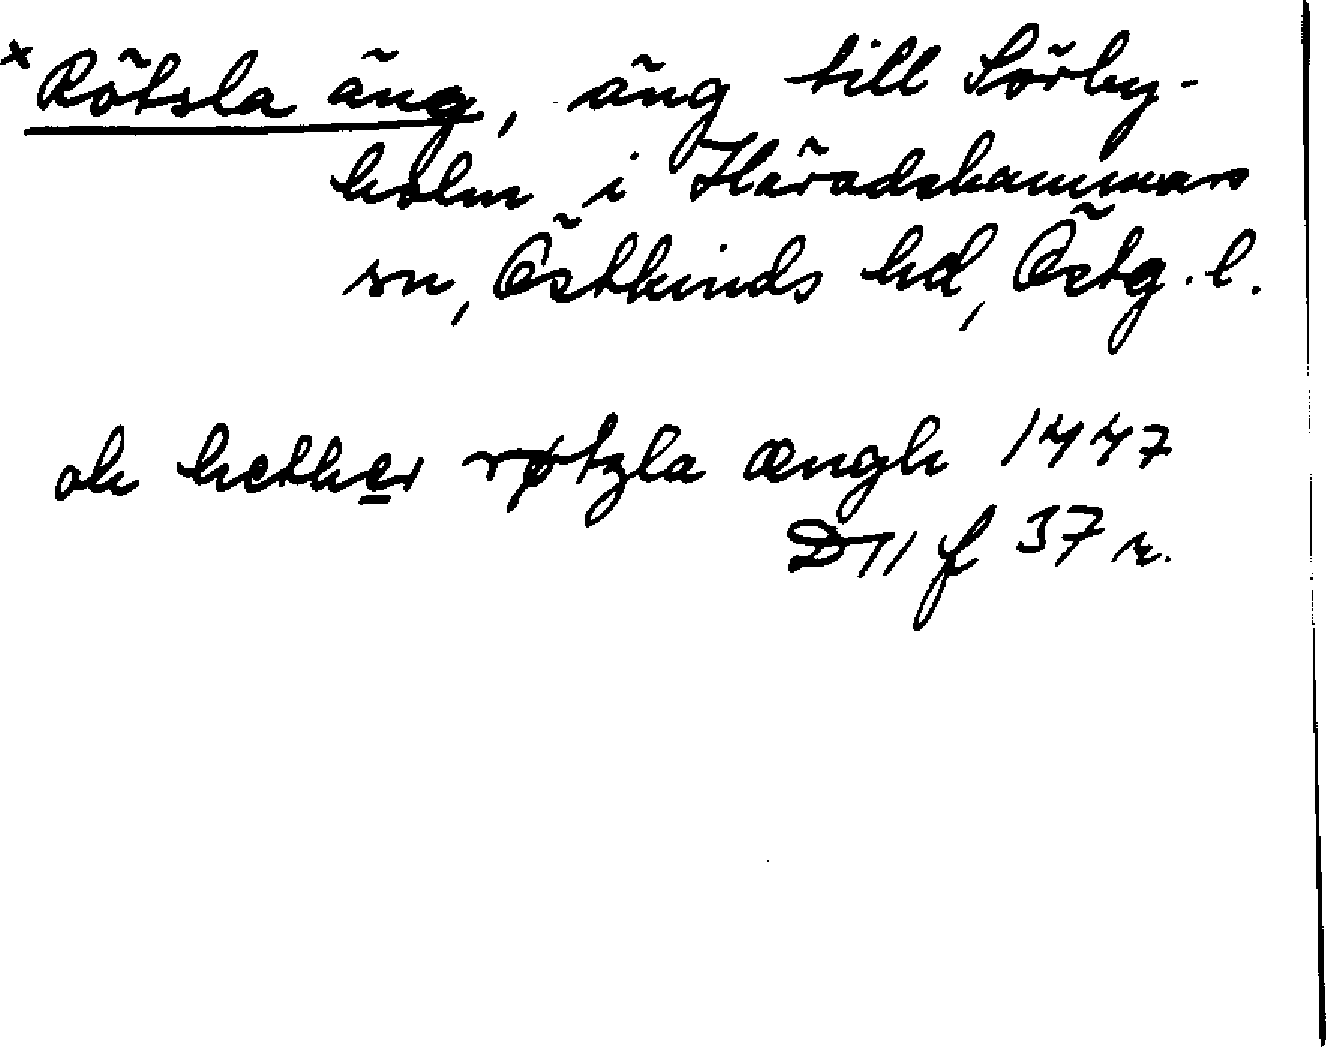 × Rötsla äng, äng till Sörby-
holm i Häradshammars
sn, Östkinds hd, Östg. l.
ok hether røtzla ængh 1447
D 11 f 37 r.